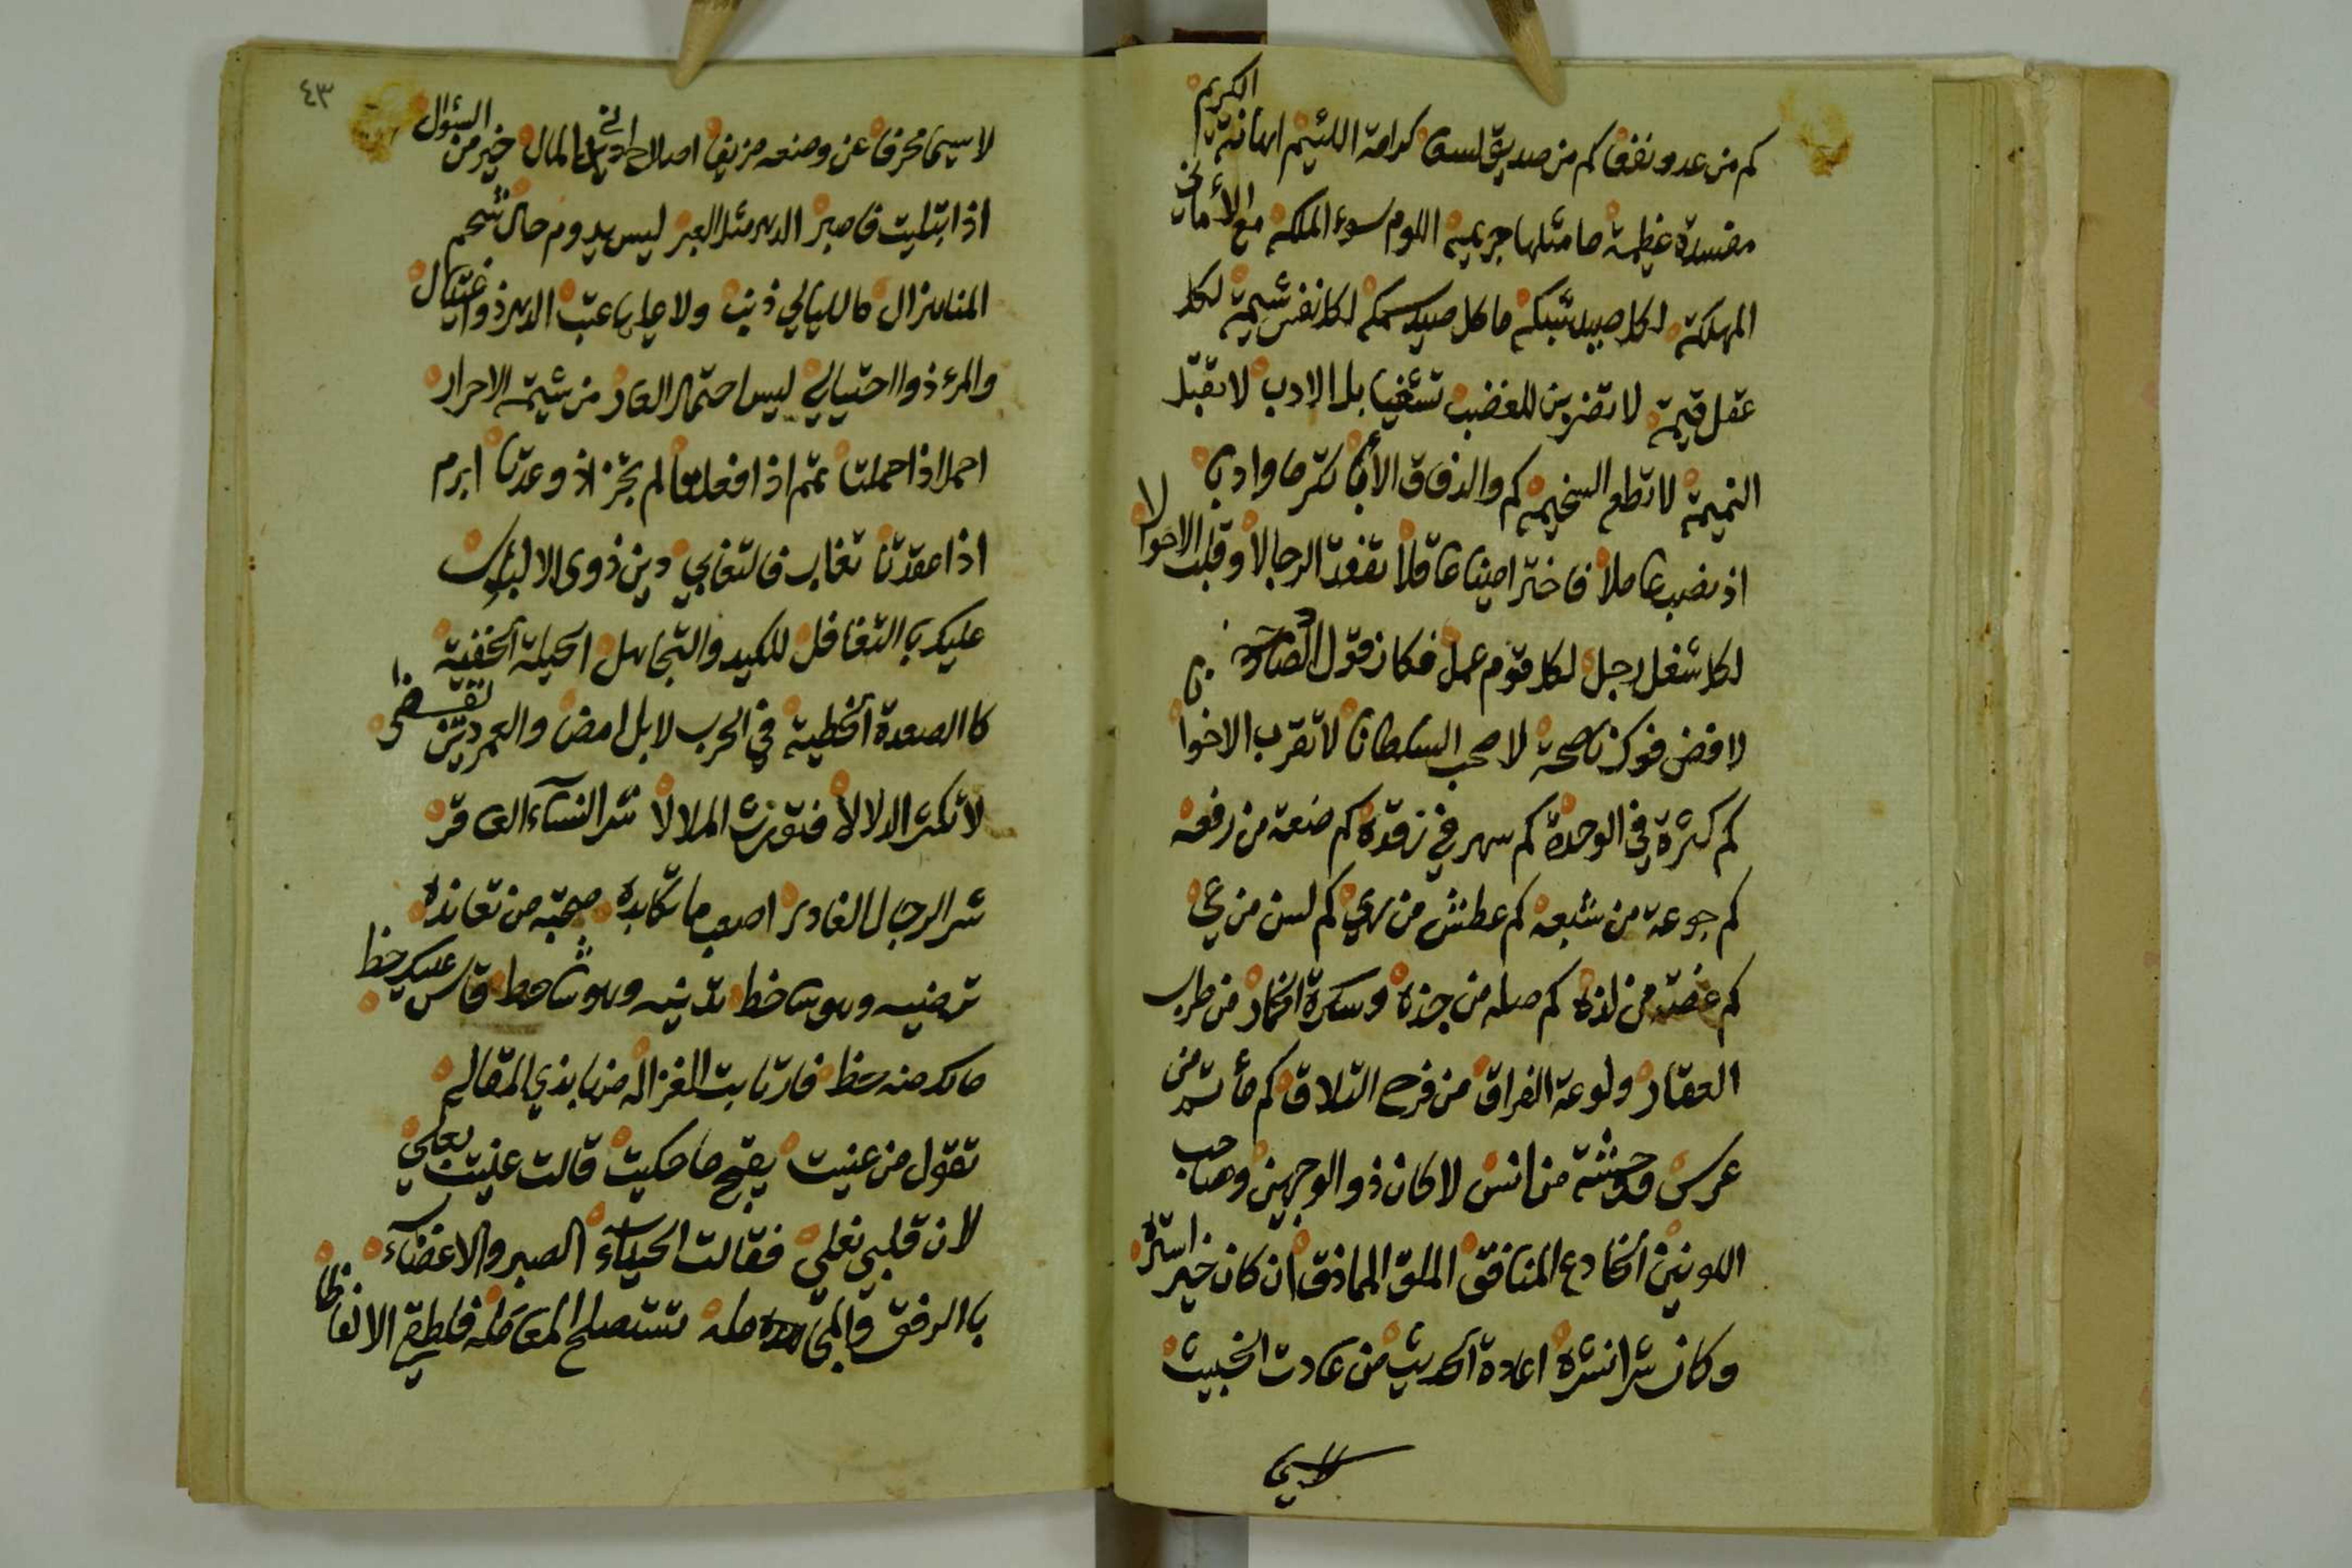 كم من عدو نفعا كم من صديق لسعا كرامة اللئيم اهانة الكريم
مفسدة عظيمة ما مثلها جريمه اللوم سوء الملكه مع الأماني
المهلكة لكل صيد شبكه ما كل صيد سمكه لكل نفس شيمة لكل
عقل قيمة لا تغضبن للغضب تشغيبا بل الادب لا تقبل
النميمة لا تطع السخيمه كم والد فاق الأبا كثر ما وادبا
اذ نصب عاملا فاختر امينا عاقلا تفقد الرجالا وقلب الاحوالا
لكل شغل رجل لكل قوم عمل فكان قول الصادح
لا فض فوك ناصحة لا صحب السلطانا لا تقرب الاخوانا
كم كثرة في الوحدة كم سهر في رقدة كم ضعة من رفعه
كم جوعة من شبعه كم عطش من ري كم لسن من عي
كم غصة من لذة كم صله من جذة وسكرة الخمار من طرب
العقار ولوعة الفراق من فرح التلاق كم مأتم من
عرس ووحشة من انس لا كان ذو الوجهين وصاحب
اللونين الخادع المنافق الملق المماذق ان كان خير استره
وكان شرا نشره اعادة الحديث من عادت الخبيث
لاسي
٤٣
لا سيما محرفا عن وضعه مزيفا اصلاح المال خير من السؤال
اذا ابتليت فاصبر الدهر مثل العبر ليس يدوم حال تحم
المنا هزال ما لليالي ذنب ولا عليها عتب الدهر ذو اغتيال
والمرء ذو احتيالي ليس احتمال العار من شيمة الاحرار
احمل اذا حملتا تمم اذا فعلتا لم تجز اذ وعدتا ابرم
اذا عقدتا تغاب فالتغابي دين ذوى الالباب
عليك باالتغافل للكيد والتجاهل الحيلة الخفية
كا الصعدة الخطية في الحرب لا بل امضا والعمر دين نقضى
لا تكثر الدلالا فتورث الملالا شر النساء العاقر
شر الرجال الغادر اصعب ما تكابده صحبة من تعانده
ترضيه وهو ساخط تدنيه وهو شاحط قاس عليك حظ
مالك منه حظ فارتابت الغزاله من هابذي المقاله
تقول من عنيت يقبح ما حكيت قالت عنيت بعلي
لان قلبي يغلي فقالت الحياء الصبر والاغضاء
با الرفق والمجامله تستصلح المعامله فلطفي الالفاظا